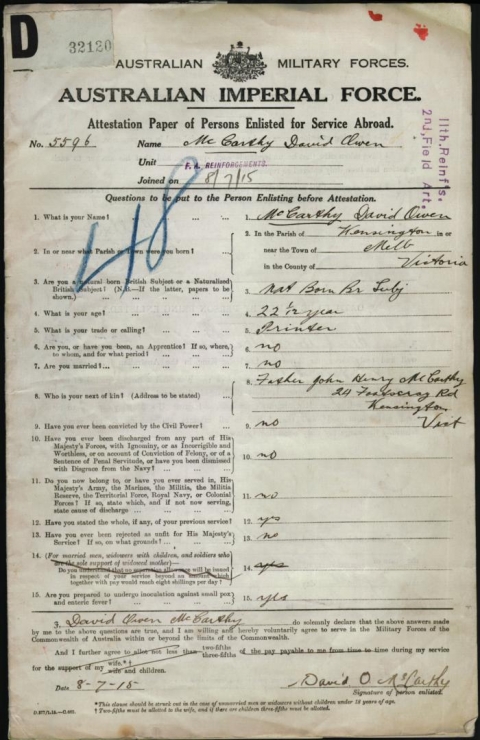 D
32120
AUSTRALIAN MILITARY FORCES.
AUSTRALIAN IMPERIAL FORCE.
Attestation Paper of Persons Enlisted for Service Abroad.
11th. Reinf's.
2nd. Field Art.
No. 5596 Name McCarthy David Owen
Unit F. A. REINFORCEMENTS.
Joined on 8/7/15
Questions to be put to the Person Enlisting before Attestation.
48
1. What is your Name? ... ... ... 1. McCarthy David Owen
2. In or near what Parish or Town were you born? ... 2. In the Parish of Kensington in or
near the Town of Melb
in the County of Victoria
3. Are you a natural born British Subject or a Naturalized
British Subject? (N.B.—If the latter, papers to be
shown.) ... ... 3. Nat Born Br Subj
4. What is your age? ... ... 4. 22 1/12 year
5. What is your trade or calling? ... ... 5. Printer
6. Are you, or have you been, an Apprentice? If so, where,
to whom, and for what period? ... ... 6. no
7. Are you married? ... ... ... 7. no
8. Who is your next of kin? (Address to be stated) ... 8. Father John Henry McCarthy
24 Footscray Rd
Kensington
Vict
9. Have you ever been convicted by the Civil Power? ... 9. no
10. Have you ever been discharged from any part of His
Majesty's Forces, with Ignominy, or as Incorrigible and
Worthless, or on account of Conviction of Felony, or of a
Sentence of Penal Servitude, or have you been dismissed
with Disgrace from the Navy? ... ... 10. no
11. Do you now belong to, or have you ever served in, His
Majesty's Army, the Marines, the Militia, the Militia
Reserve, the Territorial Force, Royal Navy, or Colonial
Forces? If so, state which, and if not now serving,
state cause of discharge ... ... 11. no
12. Have you stated the whole, if any, of your previous service? 12. yes
13. Have you ever been rejected as unfit for His Majesty's
Service? If so, on what grounds? ... ... 13. no
14. (For married men, widowers with children, and soldiers who
are the sole support of widowed mother)—
Do you understand that no separation allowance will be issued
in respect of your service beyond an amount which
together with pay would reach eight shillings per day? 14. yes
15. Are you prepared to undergo inoculation against small pox
and enteric fever? ... ... 15. yes
I, David Owen McCarthy do solemnly declare that the above answers made
by me to the above questions are true, and I am willing and hereby voluntarily agree to serve in the Military Forces of the
Commonwealth of Australia within or beyond the limits of the Commonwealth.
And I further agree to allot not less than two-fifths three-fifths of the pay payable to me from time to time during my service
for the support of my wife.*† wife and children.
Date 8-7-15 David O McCarthy
Signature of person enlisted.
*This clause should be struck out in the case of unmarried men or widowers without children under 18 years of age.
† Two-fifths must be allotted to the wife, and if there are children three-fifths must be allotted.